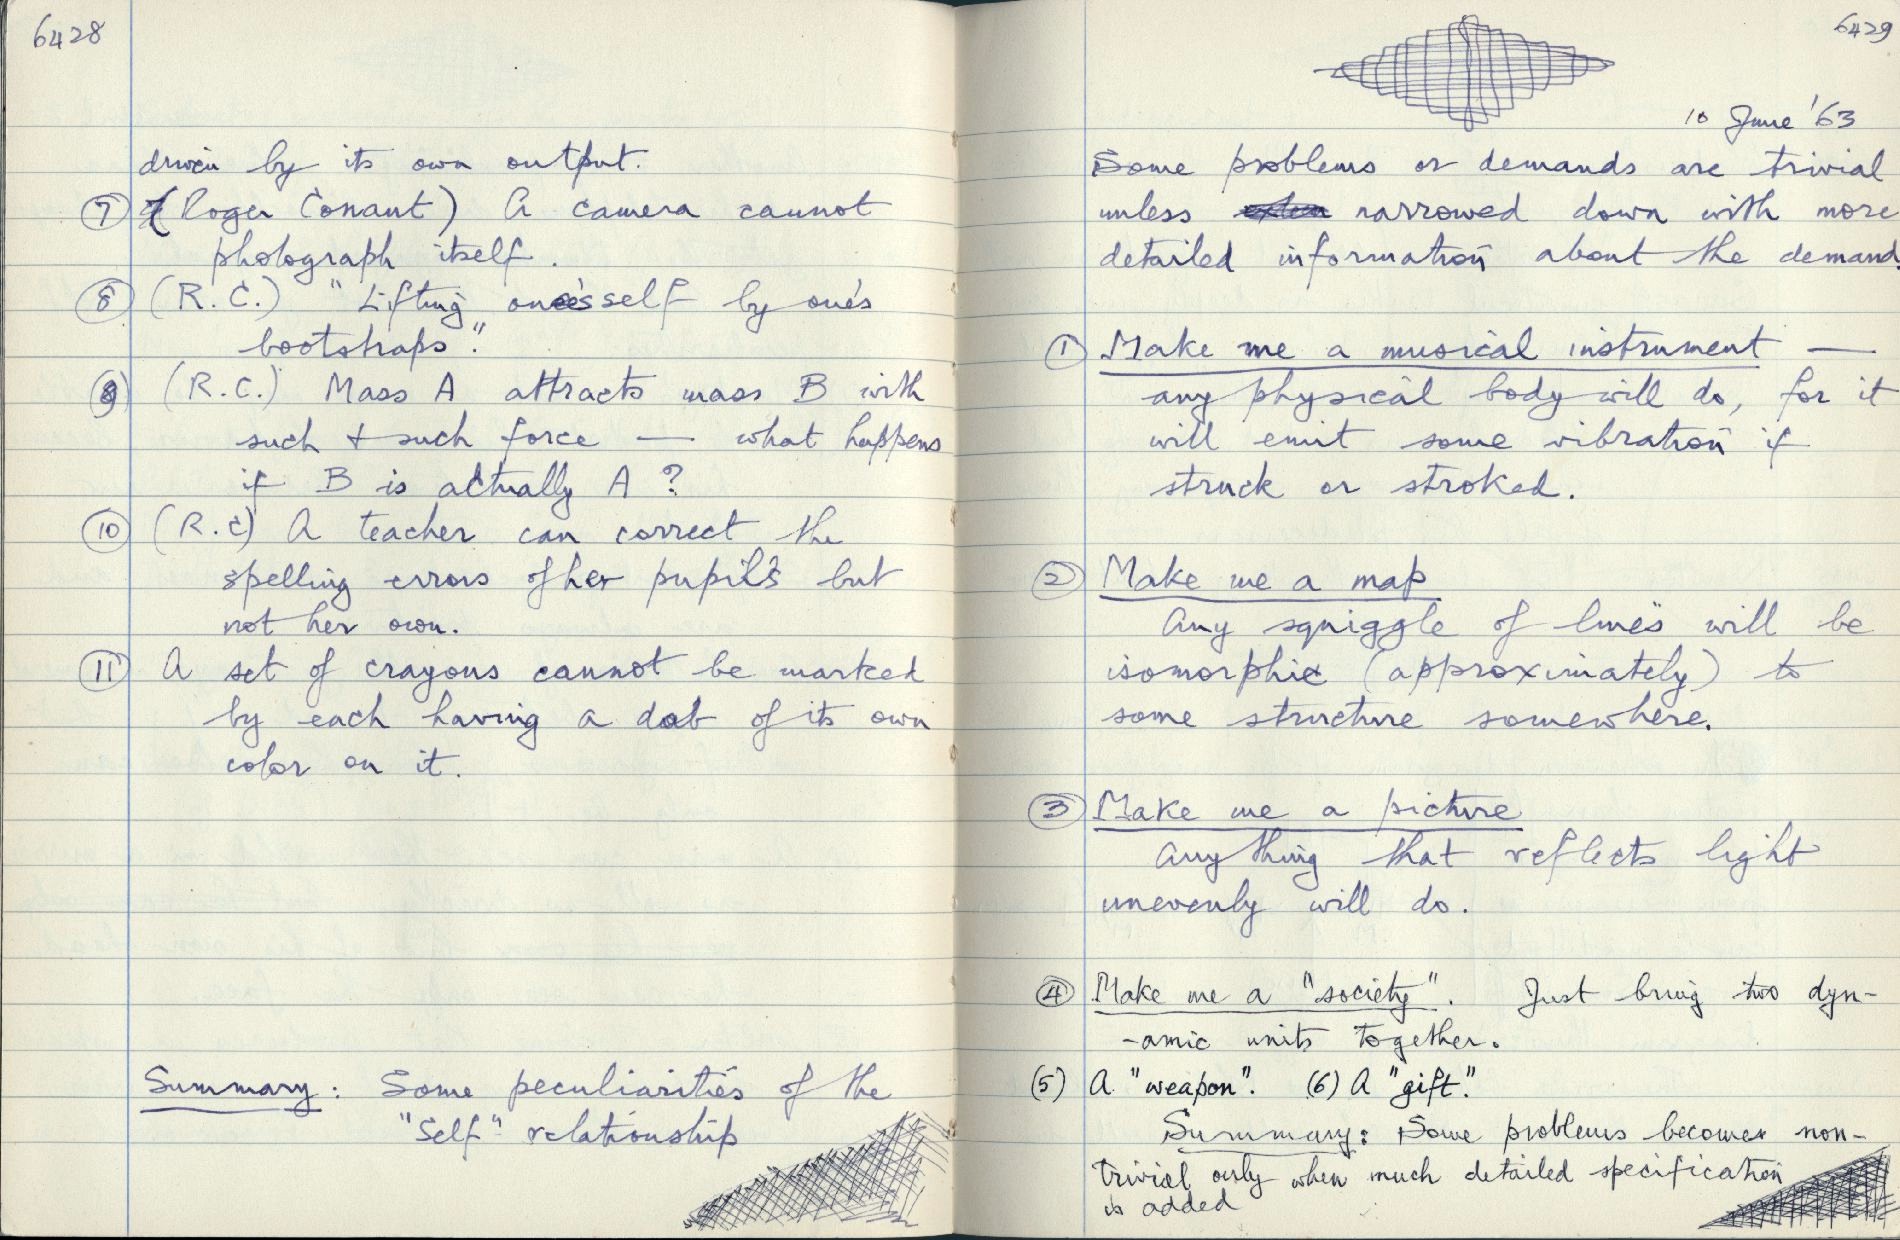 6428
driven by its own output.
⑦ (Roger Conant) A camera cannot
photograph itself.
⑧ (R.C.) "Lifting one's self by one's
bootstraps".
⑨ (R.C.) Mass A attracts mass B with
such & such force — what happens
if B is actually A ?
⑩ (R.C) A teacher can correct the
spelling errors of her pupils but
not her own.
⑪ A set of crayons cannot be marked
by each having a dab of its own
color on it.
Summary: Some peculiarities of the
"Self"- relationship
6429
10 June '63
Some problems or demands are trivial
unless narrowed down with more
detailed information about the demand.
① Make me a musical instrument —
any physical body will do, for it
will emit some vibration if
struck or stroked.
② Make me a map
Any squiggle of lines will be
isomorphic (approximately) to
some structure somewhere.
③ Make me a picture
Anything that reflects light
unevenly will do.
④ Make me a "society". Just bring two dyn-
-amic units together.
(5) A "weapon". (6) A "gift".
Summary: Some problems become non-
trivial only when much detailed specification
is added